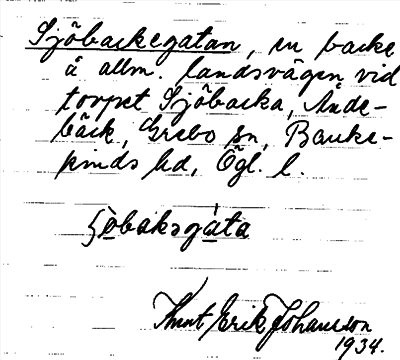 Sjöbackegatan, en backe
å allm. landsvägen vid
torpet Sjöbacka, Ånde-
bäck, Grebo sn, Banke-
kinds hd, Ögl. l.
Knut Erik Johansson
1934.